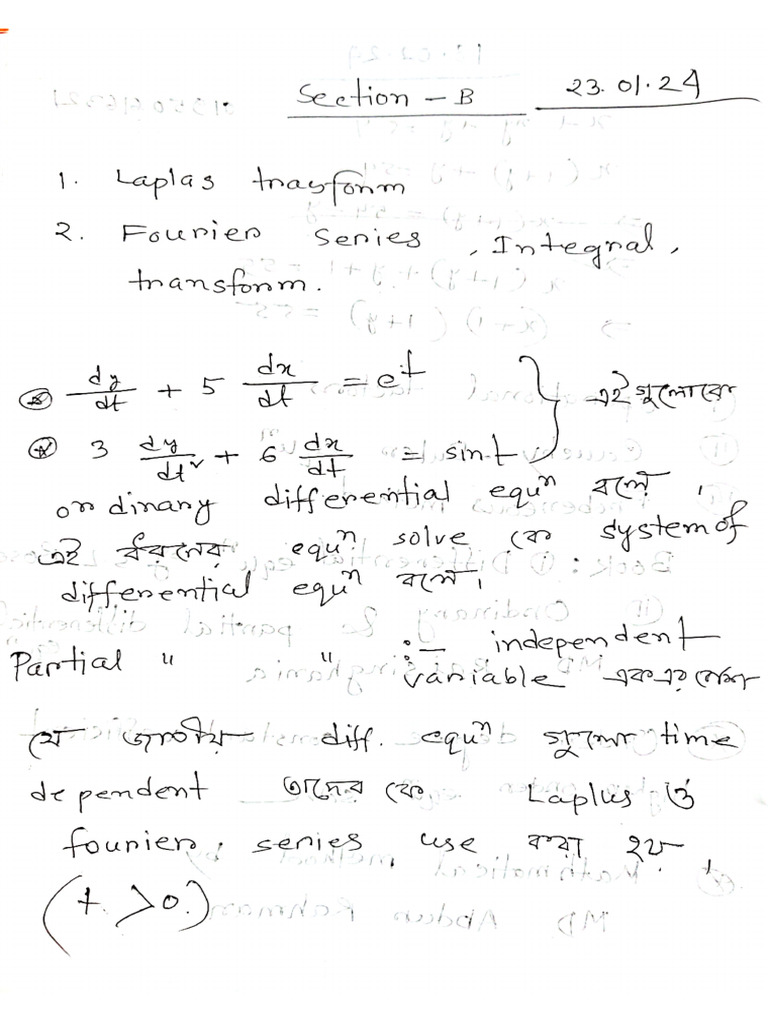 Section - B 23.01.24
1. Laplas transform
2. Fourier series, Integral,
transform.
dy/dt + 5 dx/dt = e^t
3 dy/dt² + 6 dx/dt = sint } এইগুলোকে
ordinary differential equⁿ বলে,
এই ধরনের equⁿ solve কে system of
differential equⁿ বলে।
Partial " " :- independent
variable একএর বেশি
যে জাতীয় diff. equⁿ গুলো time
dependent তাদের কে Laplus ও
fourier, series use করা হয়,
(t > 0.)